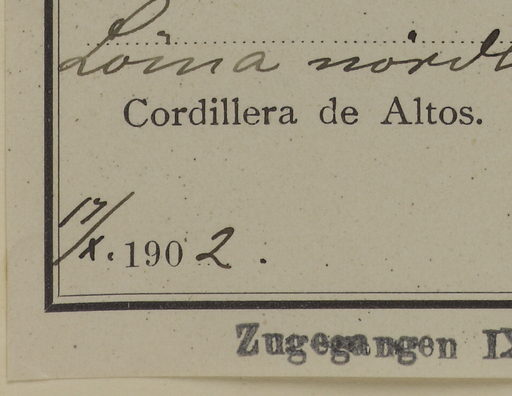 Loma nördl
Cordillera de Altos.
17/X. 1902.
Zugegangen IX